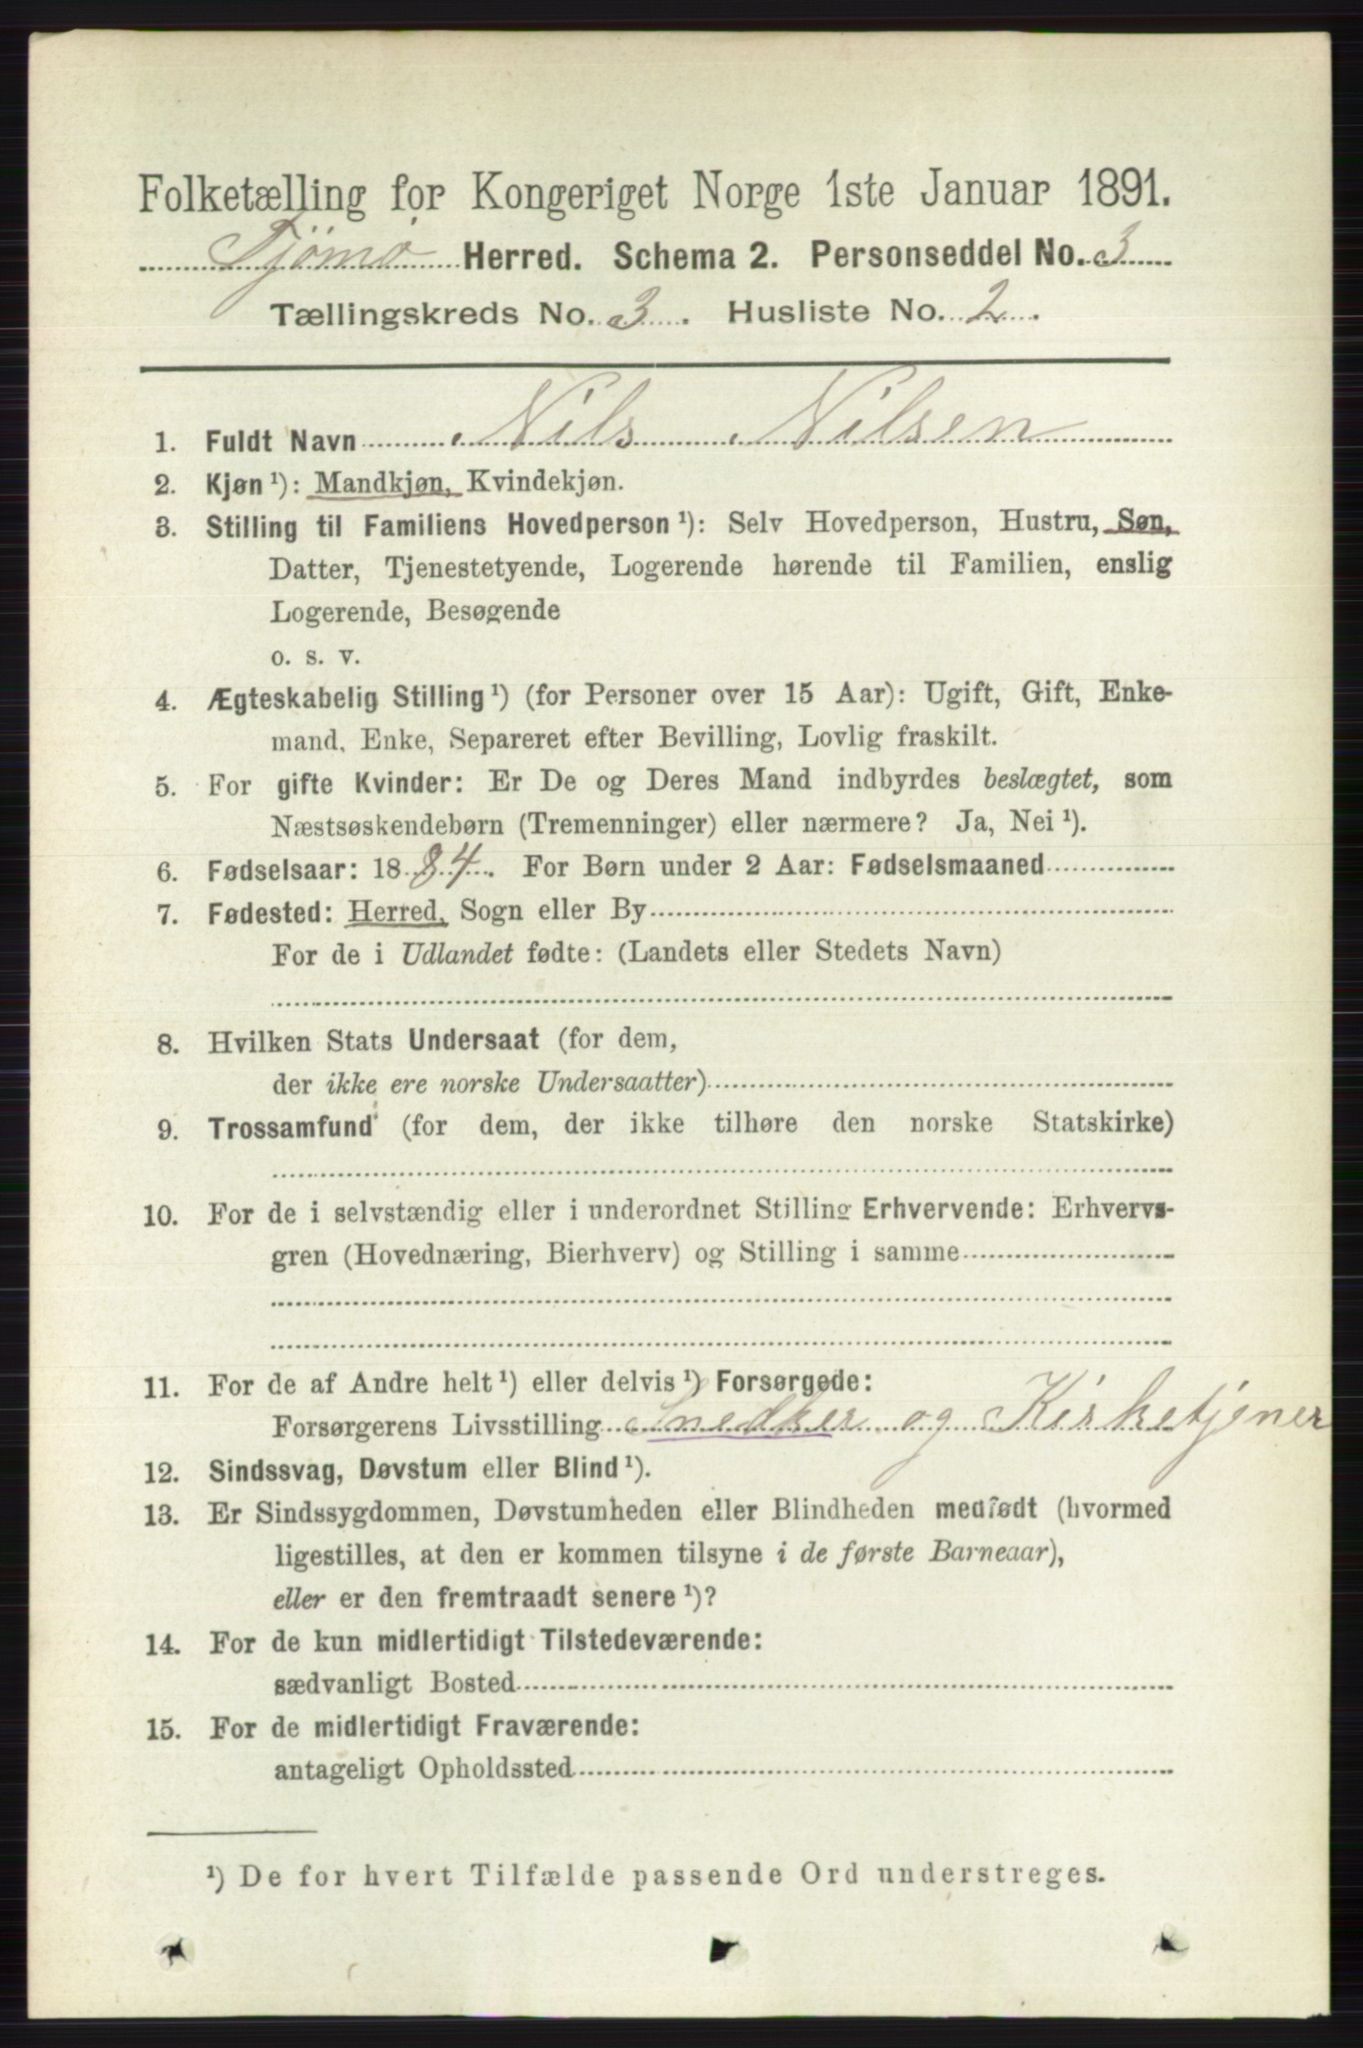 Folketælling for Kongeriget Norge 1ste Januar 1891.
Tjømø Herred. Schema 2. Personseddel No. 3
Tællingskreds No. 3. Husliste No. 2.
1. Fuldt Navn Nils Nilsen
2. Kjøn ¹): Mandkjøn, Kvindekjøn.
3. Stilling til Familiens Hovedperson ¹): Selv Hovedperson, Hustru, Søn,
Datter, Tjenestetyende, Logerende hørende til Familien, enslig
Logerende, Besøgende
o. s. v.
4. Ægteskabelig Stilling ¹) (for Personer over 15 Aar): Ugift, Gift, Enke-
mand, Enke, Separeret efter Bevilling, Lovlig fraskilt.
5. For gifte Kvinder: Er De og Deres Mand indbyrdes beslægtet, som
Næstsøskendebørn (Tremenninger) eller nærmere? Ja, Nei ¹).
6. Fødselsaar: 1884. For Børn under 2 Aar: Fødselsmaaned
7. Fødested: Herred, Sogn eller By
For de i Udlandet fødte: (Landets eller Stedets Navn)
8. Hvilken Stats Undersaat (for dem,
der ikke ere norske Undersaatter)
9. Trossamfund (for dem, der ikke tilhøre den norske Statskirke)
10. For de i selvstændig eller i underordnet Stilling Erhvervende: Erhvervs-
gren (Hovednæring, Bierhverv) og Stilling i samme
11. For de af Andre helt ¹) eller delvis ¹) Forsørgede:
Forsørgerens Livsstilling Snedker og Kirketjener
12. Sindssvag, Døvstum eller Blind ¹).
13. Er Sindssygdommen, Døvstumheden eller Blindheden medfødt (hvormed
ligestilles, at den er kommen tilsyne i de første Barneaar),
eller er den fremtraadt senere ¹)?
14. For de kun midlertidigt Tilstedeværende:
sædvanligt Bosted
15. For de midlertidigt Fraværende:
antageligt Opholdssted
¹) De for hvert Tilfælde passende Ord understreges.